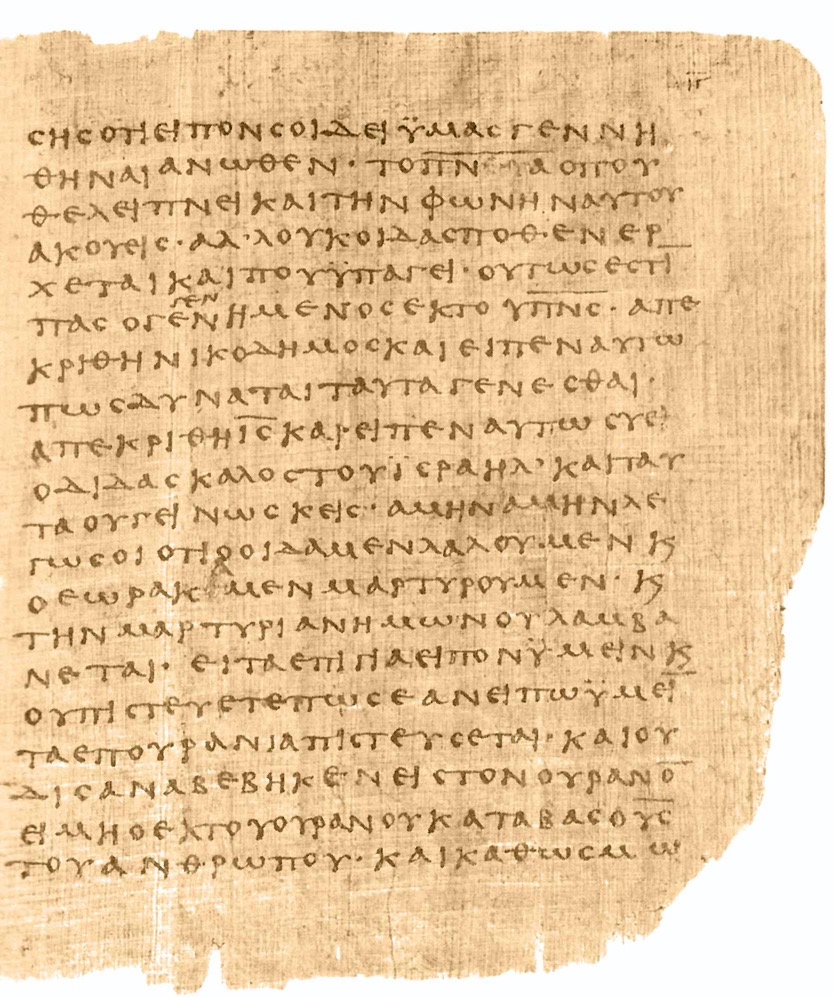 ϹΗϹΟΤΙΕΙΠΟΝϹΟΙΔΕΙΫΜΑϹΓΕΝΝΗ
ΘΗΝΑΙΑΝΩΘΕΝ· ΤΟΠ̅Ν̅Α̅ΟΠΟΥ
ΘΕΛΕΙΠΝΕΙΚΑΙΤΗΝΦΩΝΗΝΑΥΤΟΥ
ΑΚΟΥΕΙϹ·ΑΛ'ΛΟΥΚΟΙΔΑϹΠΟΘΕΝΕΡ
ΧΕΤΑΙΚΑΙΠΟΥΫΠΑΓΕΙ·ΟΥΤΩϹΕϹΤΙ̅
ΓΕΝ
ΠΑϹΟΓΕΝΗΜΕΝΟϹΕΚΤΟΥΠ̅Ν̅Ϲ̅·ΑΠΕ
ΚΡΙΘΗΝΙΚΟΔΗΜΟϹΚΑΙΕΙΠΕΝΑΥΤΩ
ΠΩϹΔΥΝΑΤΑΙΤΑΥΤΑΓΕΝΕϹΘΑΙ·
ΑΠΕΚΡΙΘΗΙ̅Ϲ̅ΚΑΙΕΙΠΕΝΑΥΤΩϹΥΕΙ
ΟΔΙΔΑϹΚΑΛΟϹΤΟΥΪϹΡΑΗΛ'ΚΑΙΤΑΥ
ΤΑΟΥΓΕΙΝΩϹΚΕΙϹ·ΑΜΗΝΑΜΗΝΛΕ
ΓΩϹΟΙΟΤΙΟΟΙΔΑΜΕΝΛΑΛΟΥΜΕΝϏ
ΟΕΩΡΑΚΑΜΕΝΜΑΡΤΥΡΟΥΜΕΝ·Ϗ
ΤΗΝΜΑΡΤΥΡΙΑΝΗΜΩΝΟΥΛΑΜΒΑ
ΝΕΤΑΙ·ΕΙΤΑΕΠΙΓΙΑΕΙΠΟΝΫΜΕΙΝϏ
ΟΥΠΙϹΤΕΥΕΤΕΠΩϹΕΑΝΕΙΠΩΫΜΕΙ̅
ΤΑΕΠΟΥΡΑΝΙΑΠΙϹΤΕΥϹΕΤΑΙ·ΚΑΙΟΥ
ΔΙϹΑΝΑΒΕΒΗΚΕΝΕΙϹΤΟΝΟΥΡΑΝΟ̅
ΕΙΜΗΟΕΚΤΟΥΟΥΡΑΝΟΥΚΑΤΑΒΑϹΟΥ̅Ϲ̅
ΤΟΥΑΝΘΡΩΠΟΥ·ΚΑΙΚΑΘΩϹΜΩ